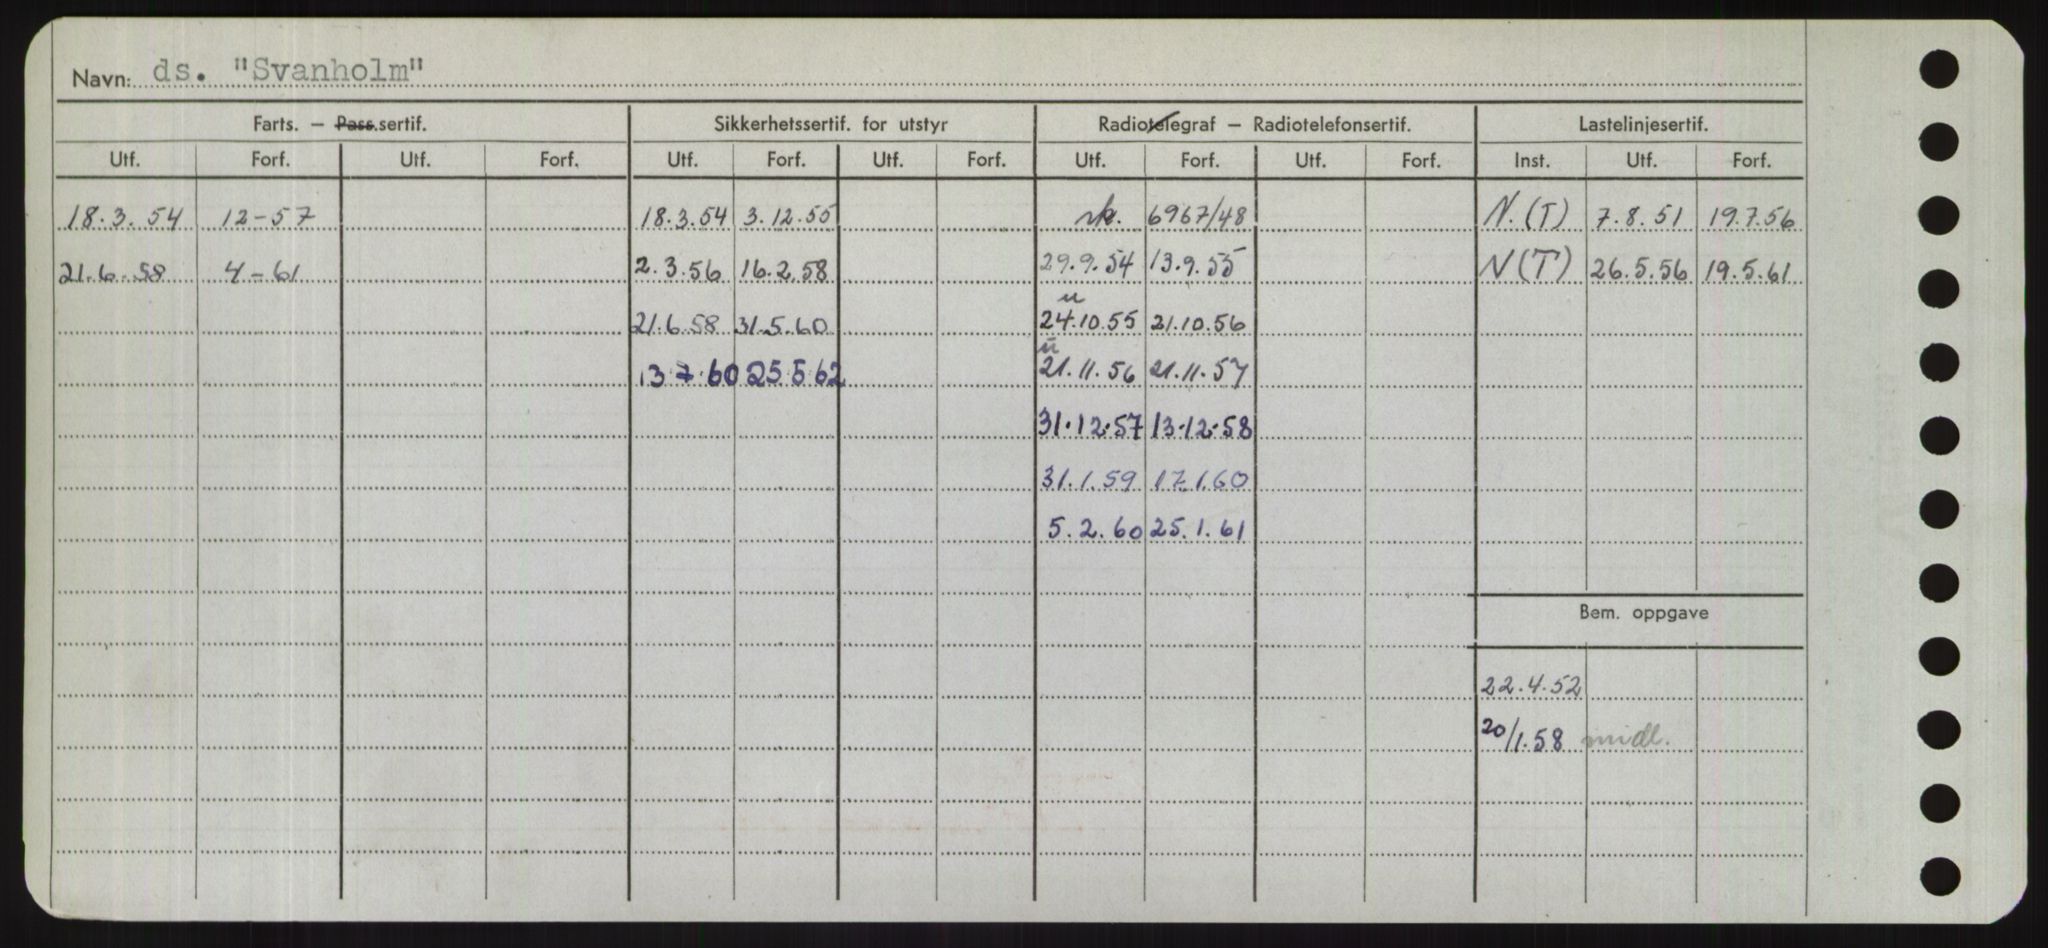 Navn: ds. "Svanholm"
Farts. — Pass.sertif. Sikkerhetssertif. for utstyr Radiotelegraf — Radiotelefonsertif. Lastelinjesertif.
Utf. Forf. Utf. Forf. Utf. Forf. Utf. Forf. Utf. Forf. Utf. Forf. Inst. Utf. Forf.
18.3.54 12-57 18.3.54 3.12.55 6967/48 N.(T) 7.8.51 19.7.56
21.6.58 4-61 2.3.56 16.2.58 29.9.54 13.9.55 N(T) 26.5.56 19.5.61
u
21.6.58 31.5.60 24.10.55 21.10.56
u
13.7.60 25.5.62 21.11.56 21.11.57
31.12.57 13.12.58
31.1.59 17.1.60
5.2.60 25.1.61
Bem. oppgave
22.4.52
20/1.58 midl.